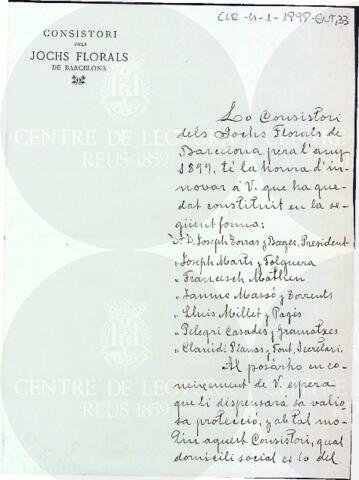 CLR-4-1-1898-ENT,33
CONSISTORI
DELS
JOCHS FLORALS
DE BARCELONA
Lo Consistori
dels Jochs Florals de
Barcelona pera l'any
1899, té la honra d'in-
novar á V. que ha que-
dat constituit en la se-
güent forma:
Sr. D. Joseph Torras y Bages, President
" Joseph Martí y Folguera
" Francesch Matheu
" Jaume Massó y Torrents
" Lluis Millet y Pagés
" Pelegrí Casades y Gramatxes
" Claudi Planas y Font, Secretari.
Al posarho en co-
neixement de V. espera
que li dispensará sa valio-
sa protecció, y ab tal mo-
tiu aquest Consistori, qual
domicili social es lo del
CENTRE DE LECTURA
REUS 1859
CENTRE DE LECTURA
REUS 1859